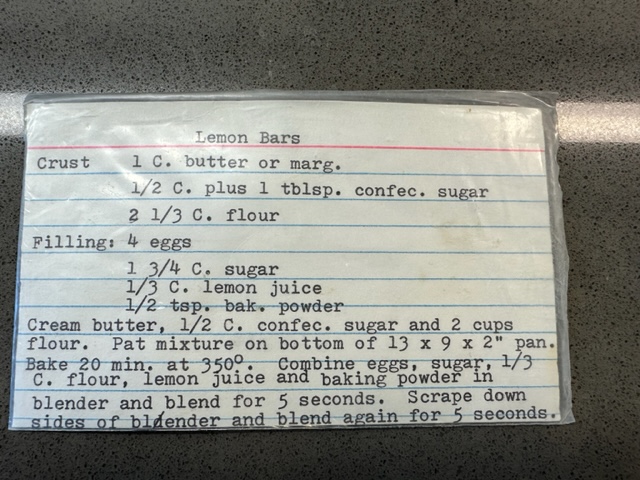 Lemon Bars
Crust 1 C. butter or marg.
1/2 C. plus 1 tblsp. confec. sugar
2 1/3 C. flour
Filling: 4 eggs
1 3/4 C. sugar
1/3 C. lemon juice
1/2 tsp. bak. powder
Cream butter, 1/2 C. confec. sugar and 2 cups
flour. Pat mixture on bottom of 13 x 9 x 2" pan.
Bake 20 min. at 350°. Combine eggs, sugar, 1/3
C. flour, lemon juice and baking powder in
blender and blend for 5 seconds. Scrape down
sides of blender and blend again for 5 seconds.